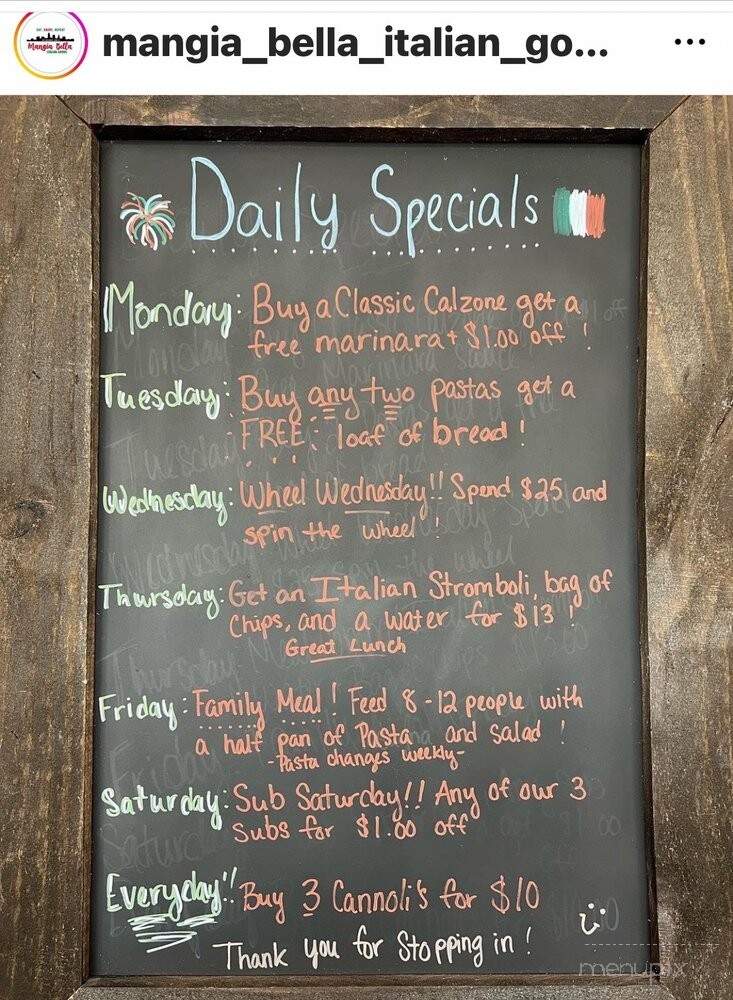 EAT, ENJOY, REPEAT
Mangia Bella
mangia_bella_italian_go...
Daily Specials
Monday: Buy a Classic Calzone get a
free marinara + $1.00 off !
Tuesday: Buy any two pastas get a
FREE: loaf of bread !
Wednesday: Wheel Wednesday!! Spend $25 and
spin the wheel !
Thursday: Get an Italian Stromboli, bag of
chips, and a water for $13 !
Great Lunch
Friday: Family Meal! Feed 8-12 people with
a half pan of Pasta and salad !
-Pasta changes weekly-
Saturday: Sub Saturday!! Any of our 3
Subs for $1.00 off
Everyday!! Buy 3 Cannoli's for $10
Thank you for Stopping in !
menupix